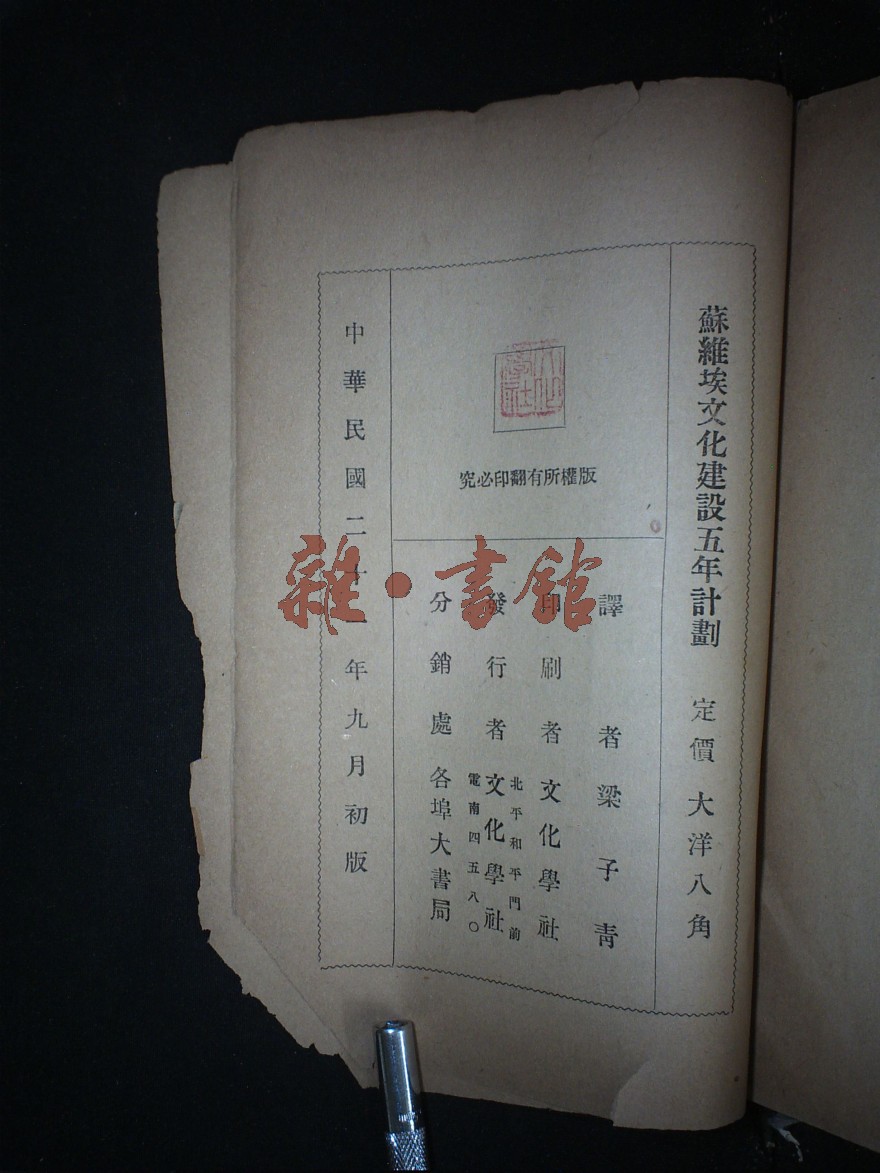 蘇維埃文化建設五年計劃 定價大洋八角
文化學社
版權所有翻印必究
譯者 梁子青
印刷者 文化學社
北平和平門前
發行者 文化學社
電南四五八〇
分銷處 各埠大書局
中華民國二十一年九月初版
雜·書館